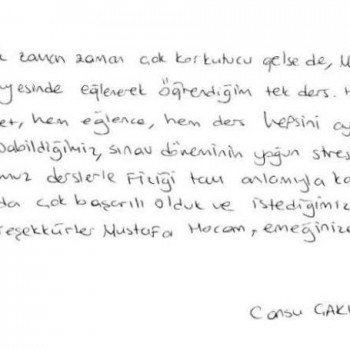 zaman zaman çok korkutucu gelse de, M
yesinde eğlenerek öğrendiğim tek ders. H
et, hem eğlence, hem ders hepsini ay
pabildiğimiz, sınav döneminin yoğun stres
muz derslerle Fiziği tam anlamıyla ka
da çok başarılı olduk ve istediğimiz
eşekkürler Mustafa Hocam, emeğinize
Cansu ÇAKI